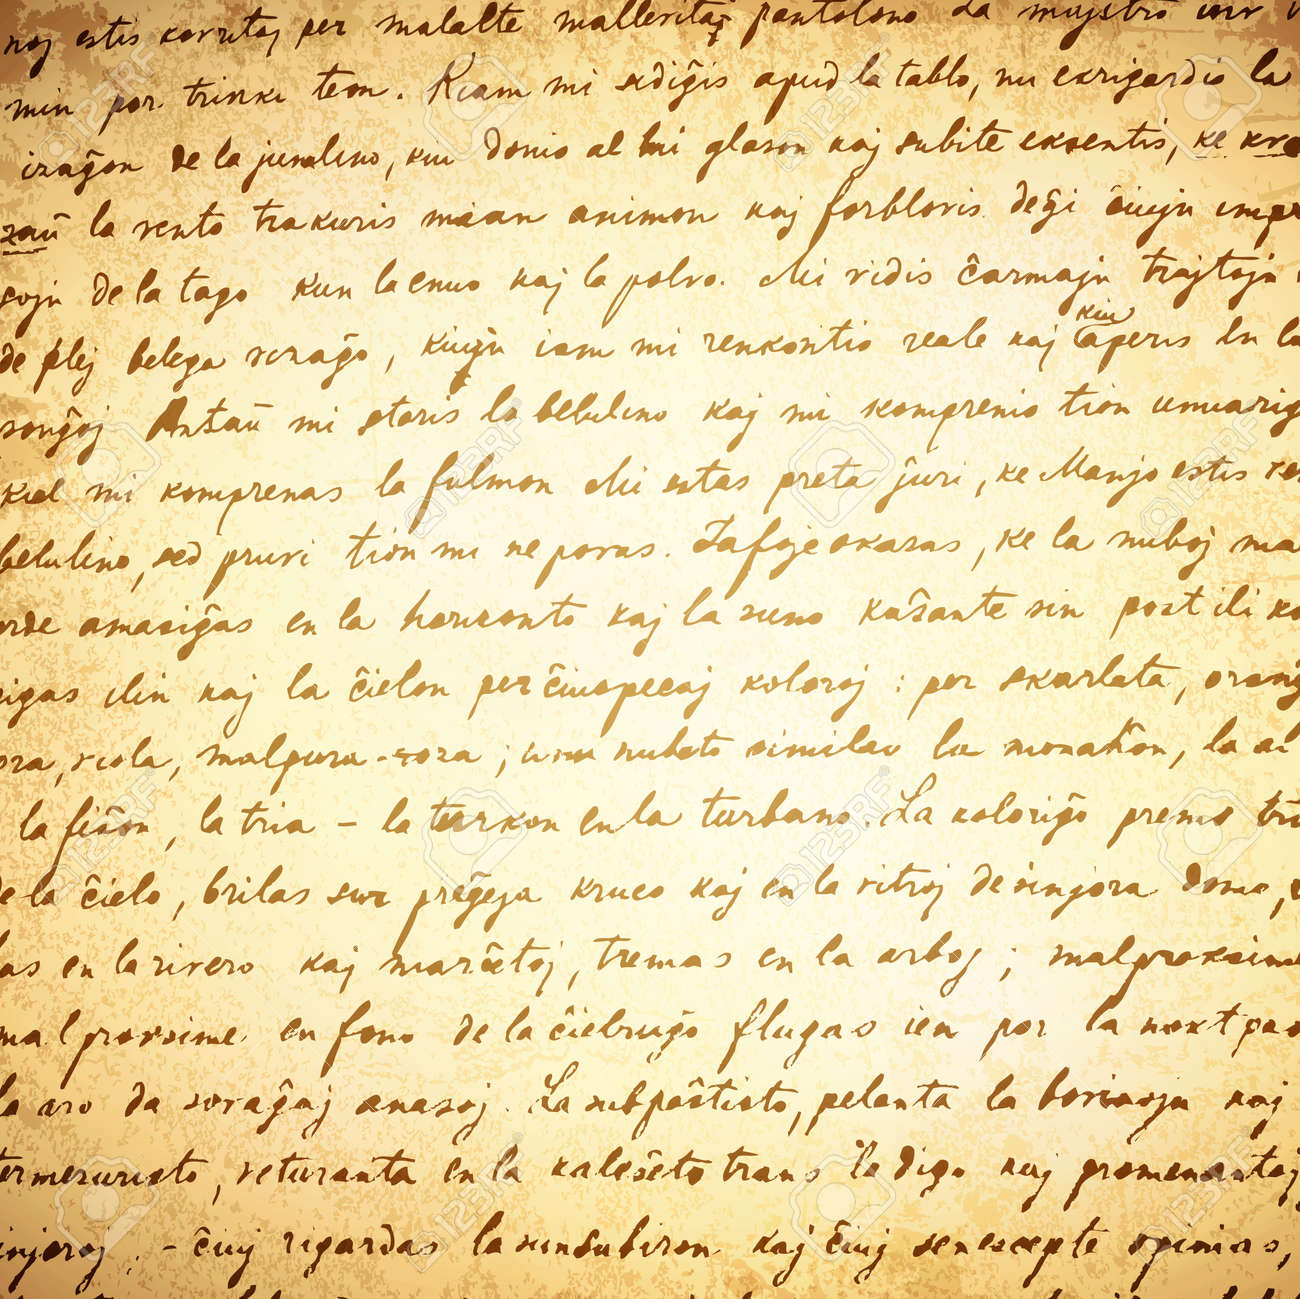 noj estis korritoj per malalte pantolono La majstro
min por trinki teon. Kiam mi sidiĝis apud la tablo, mi ekrigardis la
vizaĝon de la junulino, kiu donis al mi glason kaj subite eksentis, ke
zaŭ la vento trakuris mian animon kaj forblovis deĝi ĉiujn impr
sojn de la tago kun la enuo kaj la polvo. Mi vidis ĉarmajn trajtojn
de plej belega vizaĝo, kiujn iam mi renkontis reale kaj kiu aperis en la
sonĝoj Antaŭ mi staris la belulino kaj mi komprenis tion unuarig
kiel mi komprenas la fulmon Mi estas preta ĵuri, ke Manjo estis
belulino, sed pruvi tion mi ne povas. Iafoje okazas, ke la nuboj ma
orde amasiĝas en la horizonto kaj la suno kaŝante sin post ili ko
rigas ilin kaj la ĉielon per ĉiuspecaj koloroj: per skarlata, oranĝ
ora, viola, malpura-roza; unu nubeto similas la monaĥon, la al
la fiŝon, la tria - la turkon en la turbano. La koloriĝo prenis tri
de la ĉielo, brilas sur preĝeja kruco kaj en la vitroj de sinjora domo,
las en la rivero kaj marĉetoj, tremas en la arboj; malproksime
malproksime en fono de la ĉielruĝo flugas ien por la noktpas
la aro da sovaĝaj anasoj. La subpaŝtisto, pelanta la bovinojn kaj
termezuristo, veturanta en la kaleŝeto trans la digo kaj promenantaj
sinjoroj, - ĉiuj rigardas la sunsubiron kaj ĉiuj senescepte opinias,